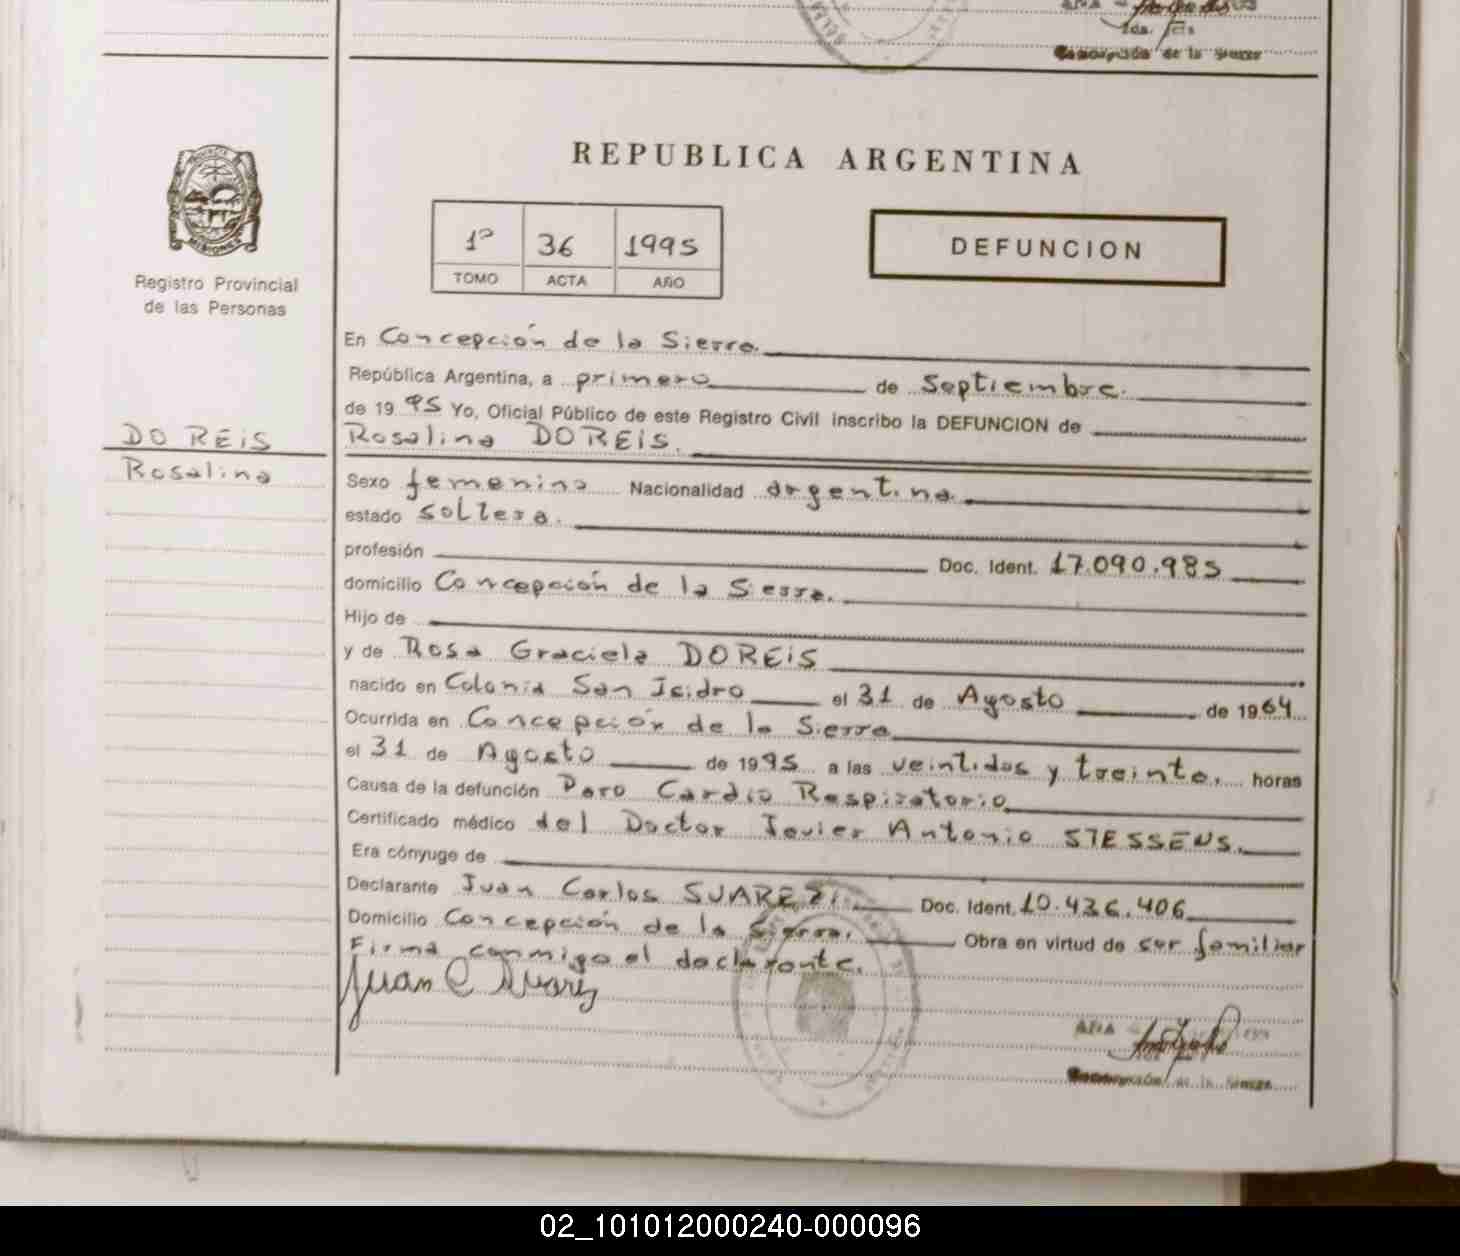 Concepción de la Sierra
REPUBLICA ARGENTINA
MISIONES
1º 36 1995
TOMO ACTA AÑO
DEFUNCION
Registro Provincial
de las Personas
DO REIS
Rosalina
En Concepción de la Sierra.
República Argentina, a primero de Septiembre.
de 1995 Yo, Oficial Público de este Registro Civil inscribo la DEFUNCION de
Rosalina DO REIS.
Sexo femenino Nacionalidad argentina.
estado soltera.
profesión Doc. Ident. 17.090.985
domicilio Concepción de la Sierra.
Hijo de
y de Rosa Graciela DO REIS
nacido en Colonia San Isidro el 31 de Agosto de 1964
Ocurrida en Concepción de la Sierra
el 31 de Agosto de 1995 a las veintidos y treinta. horas
Causa de la defunción Paro Cardio Respiratorio
Certificado médico del Doctor Javier Antonio STESSENS.
Era cónyuge de
Declarante Juan Carlos SUAREZ. Doc. Ident. 10.436.406
Domicilio Concepción de la Sierra. Obra en virtud de ser familiar
Firma conmigo el declarante.
Juan C Suarez
ANA
Concepción de la Sierra
02_101012000240-000096